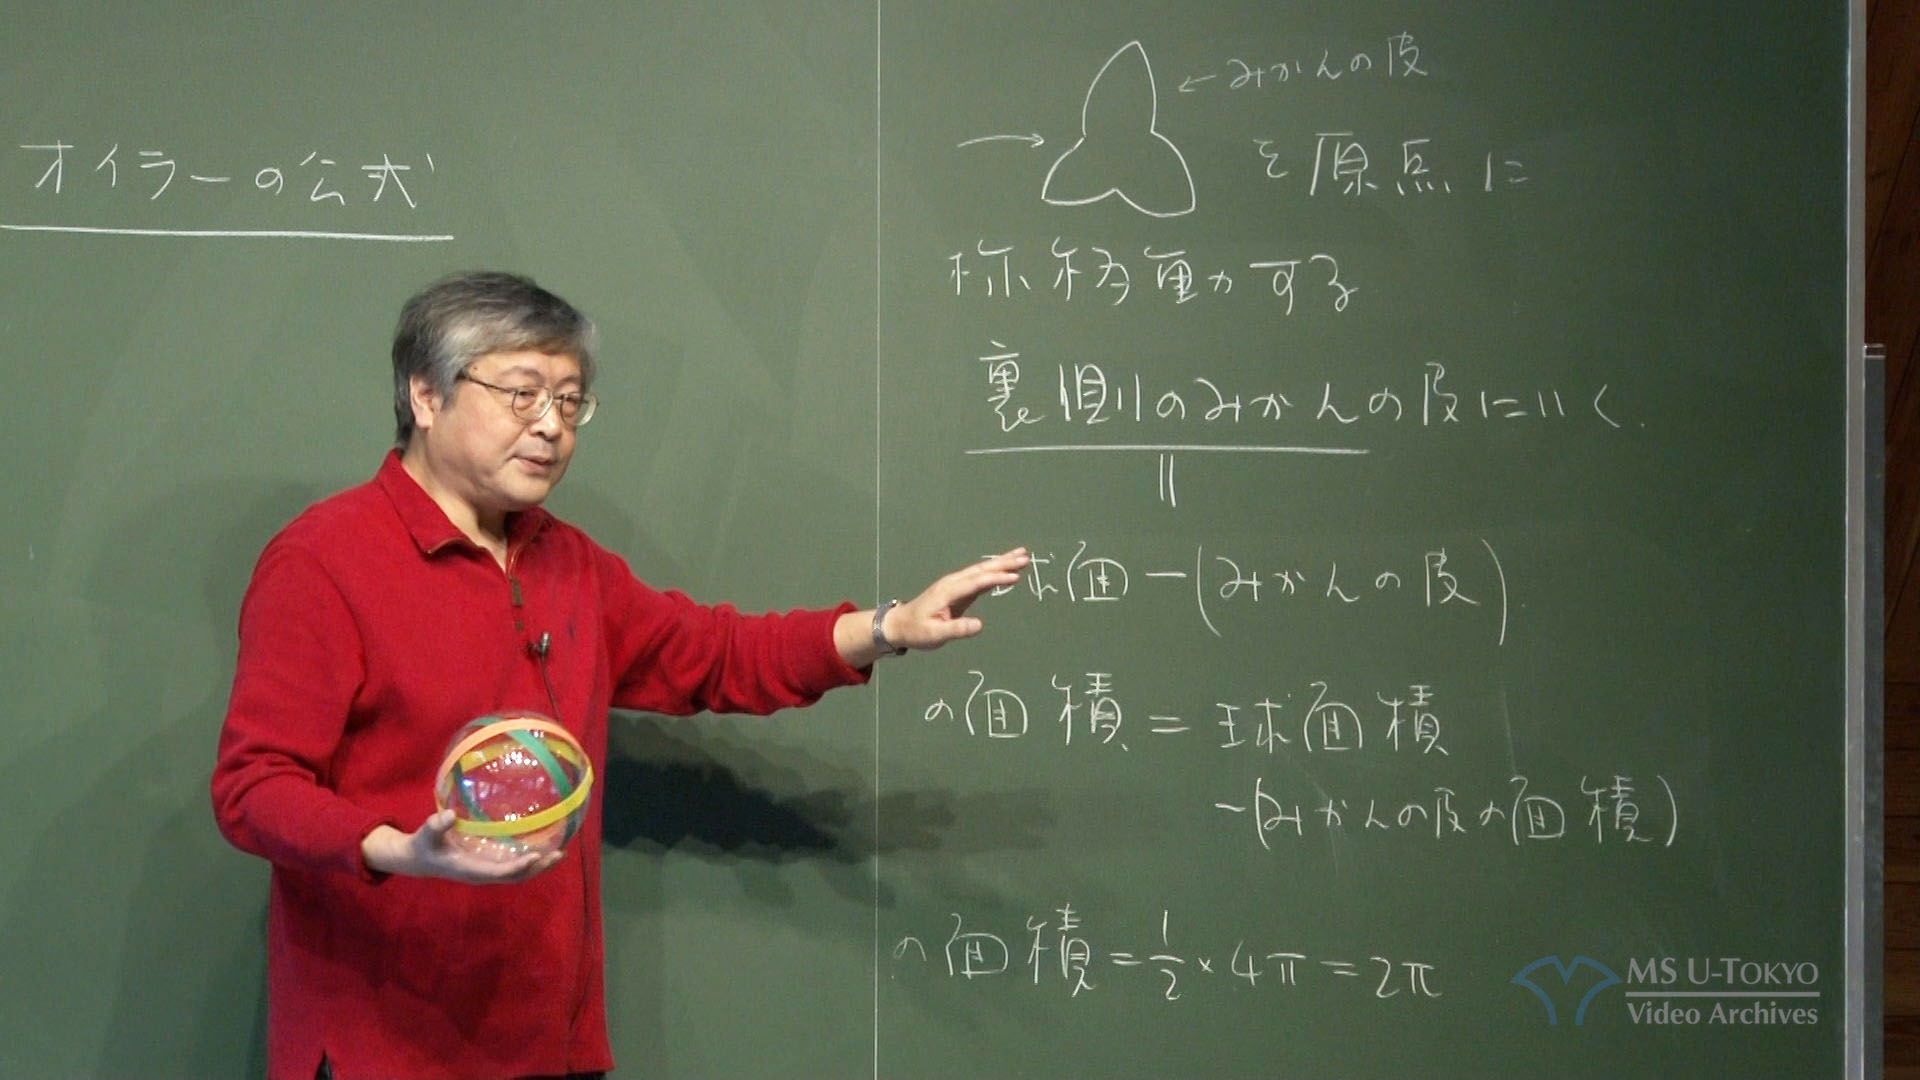 オイラーの公式
←みかんの皮
→
を原点に
称移動する
裏側のみかんの皮にいく.
||
球面-(みかんの皮).
の面積=球面積
-(みかんの皮の面積)
の面積=1/2×4π=2π
MS U-TOKYO
Video Archives